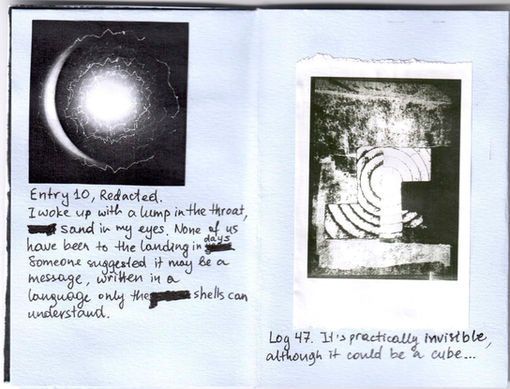 Entry 10, Redacted.
I woke up with a lump in the throat,
sand in my eyes. None of us
have been to the landing in days
Someone suggested it may be a
message, written in a
language only the shells can
understand.
Log 47. It's practically invisible,
although it could be a cube...